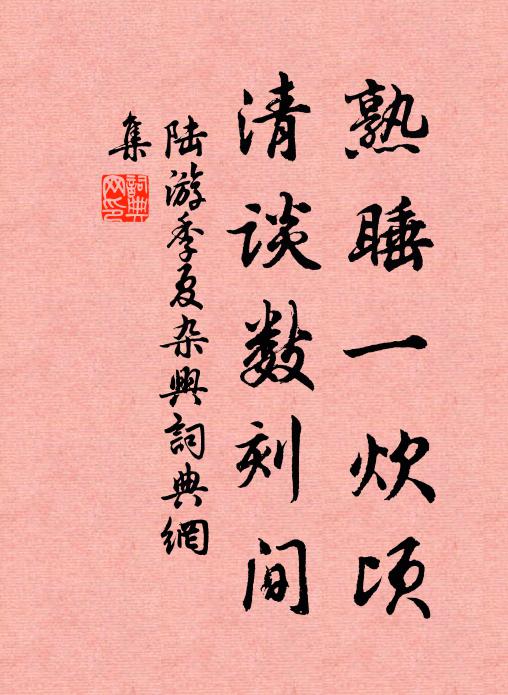 熟睡一炊顷
清谈数刻间
陆游季夏杂兴詞典網
集
詞典网印